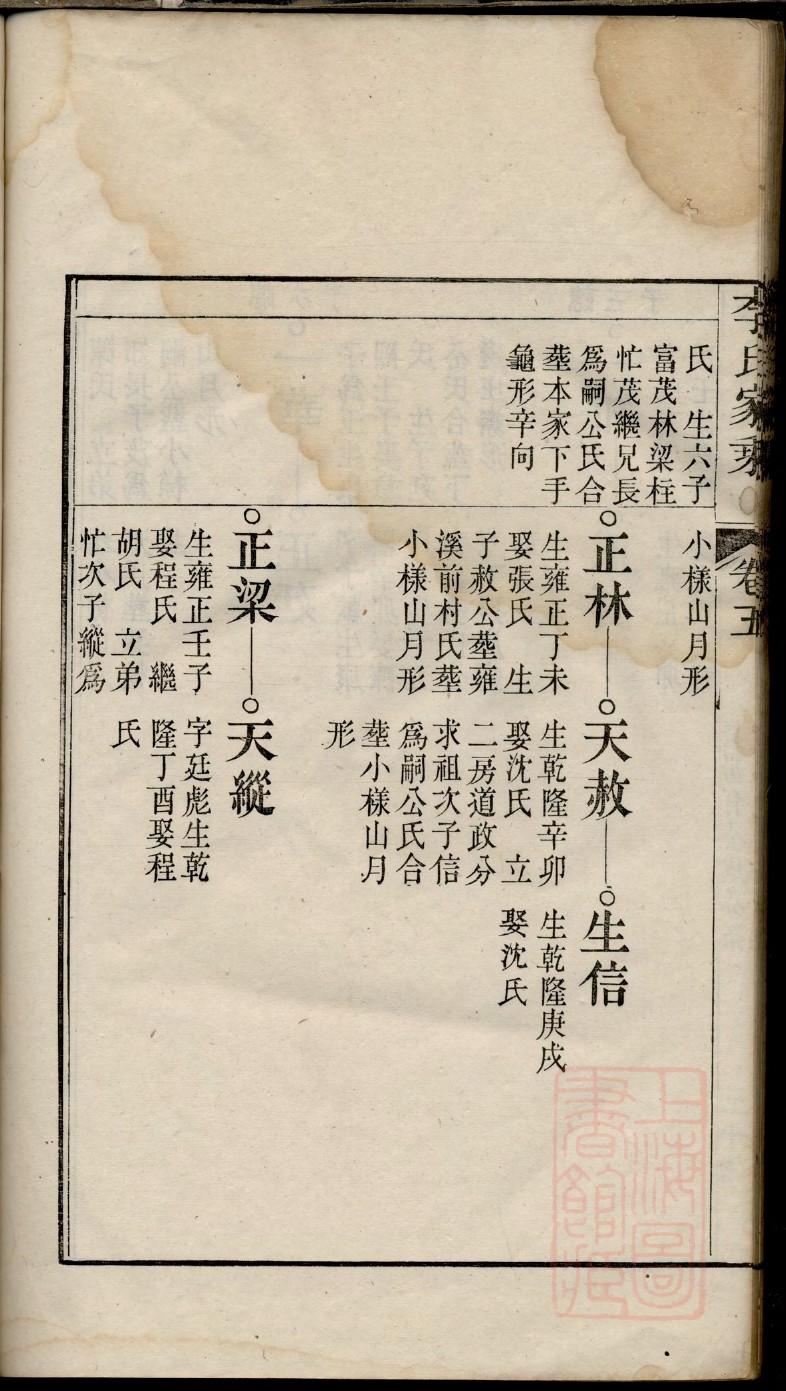 李氏家乘
卷五
氏　生六子
富茂林梁柱
忙茂繼兄長
爲嗣公氏合
塟本家下手
龜形辛向
小樣山月形
正林
生雍正丁未
娶張氏　生
子赦公塟雍
溪前村氏塟
小樣山月形
天赦
生乾隆辛卯
娶沈氏　立
二房道政分
求祖次子信
爲嗣公氏合
塟小樣山月
形
生信
生乾隆庚戌
娶沈氏
正梁
生雍正壬子
娶程氏　繼
胡氏　立弟
忙次子縱爲
天縱
字廷彪生乾
隆丁酉娶程
氏
上海圖
書館藏